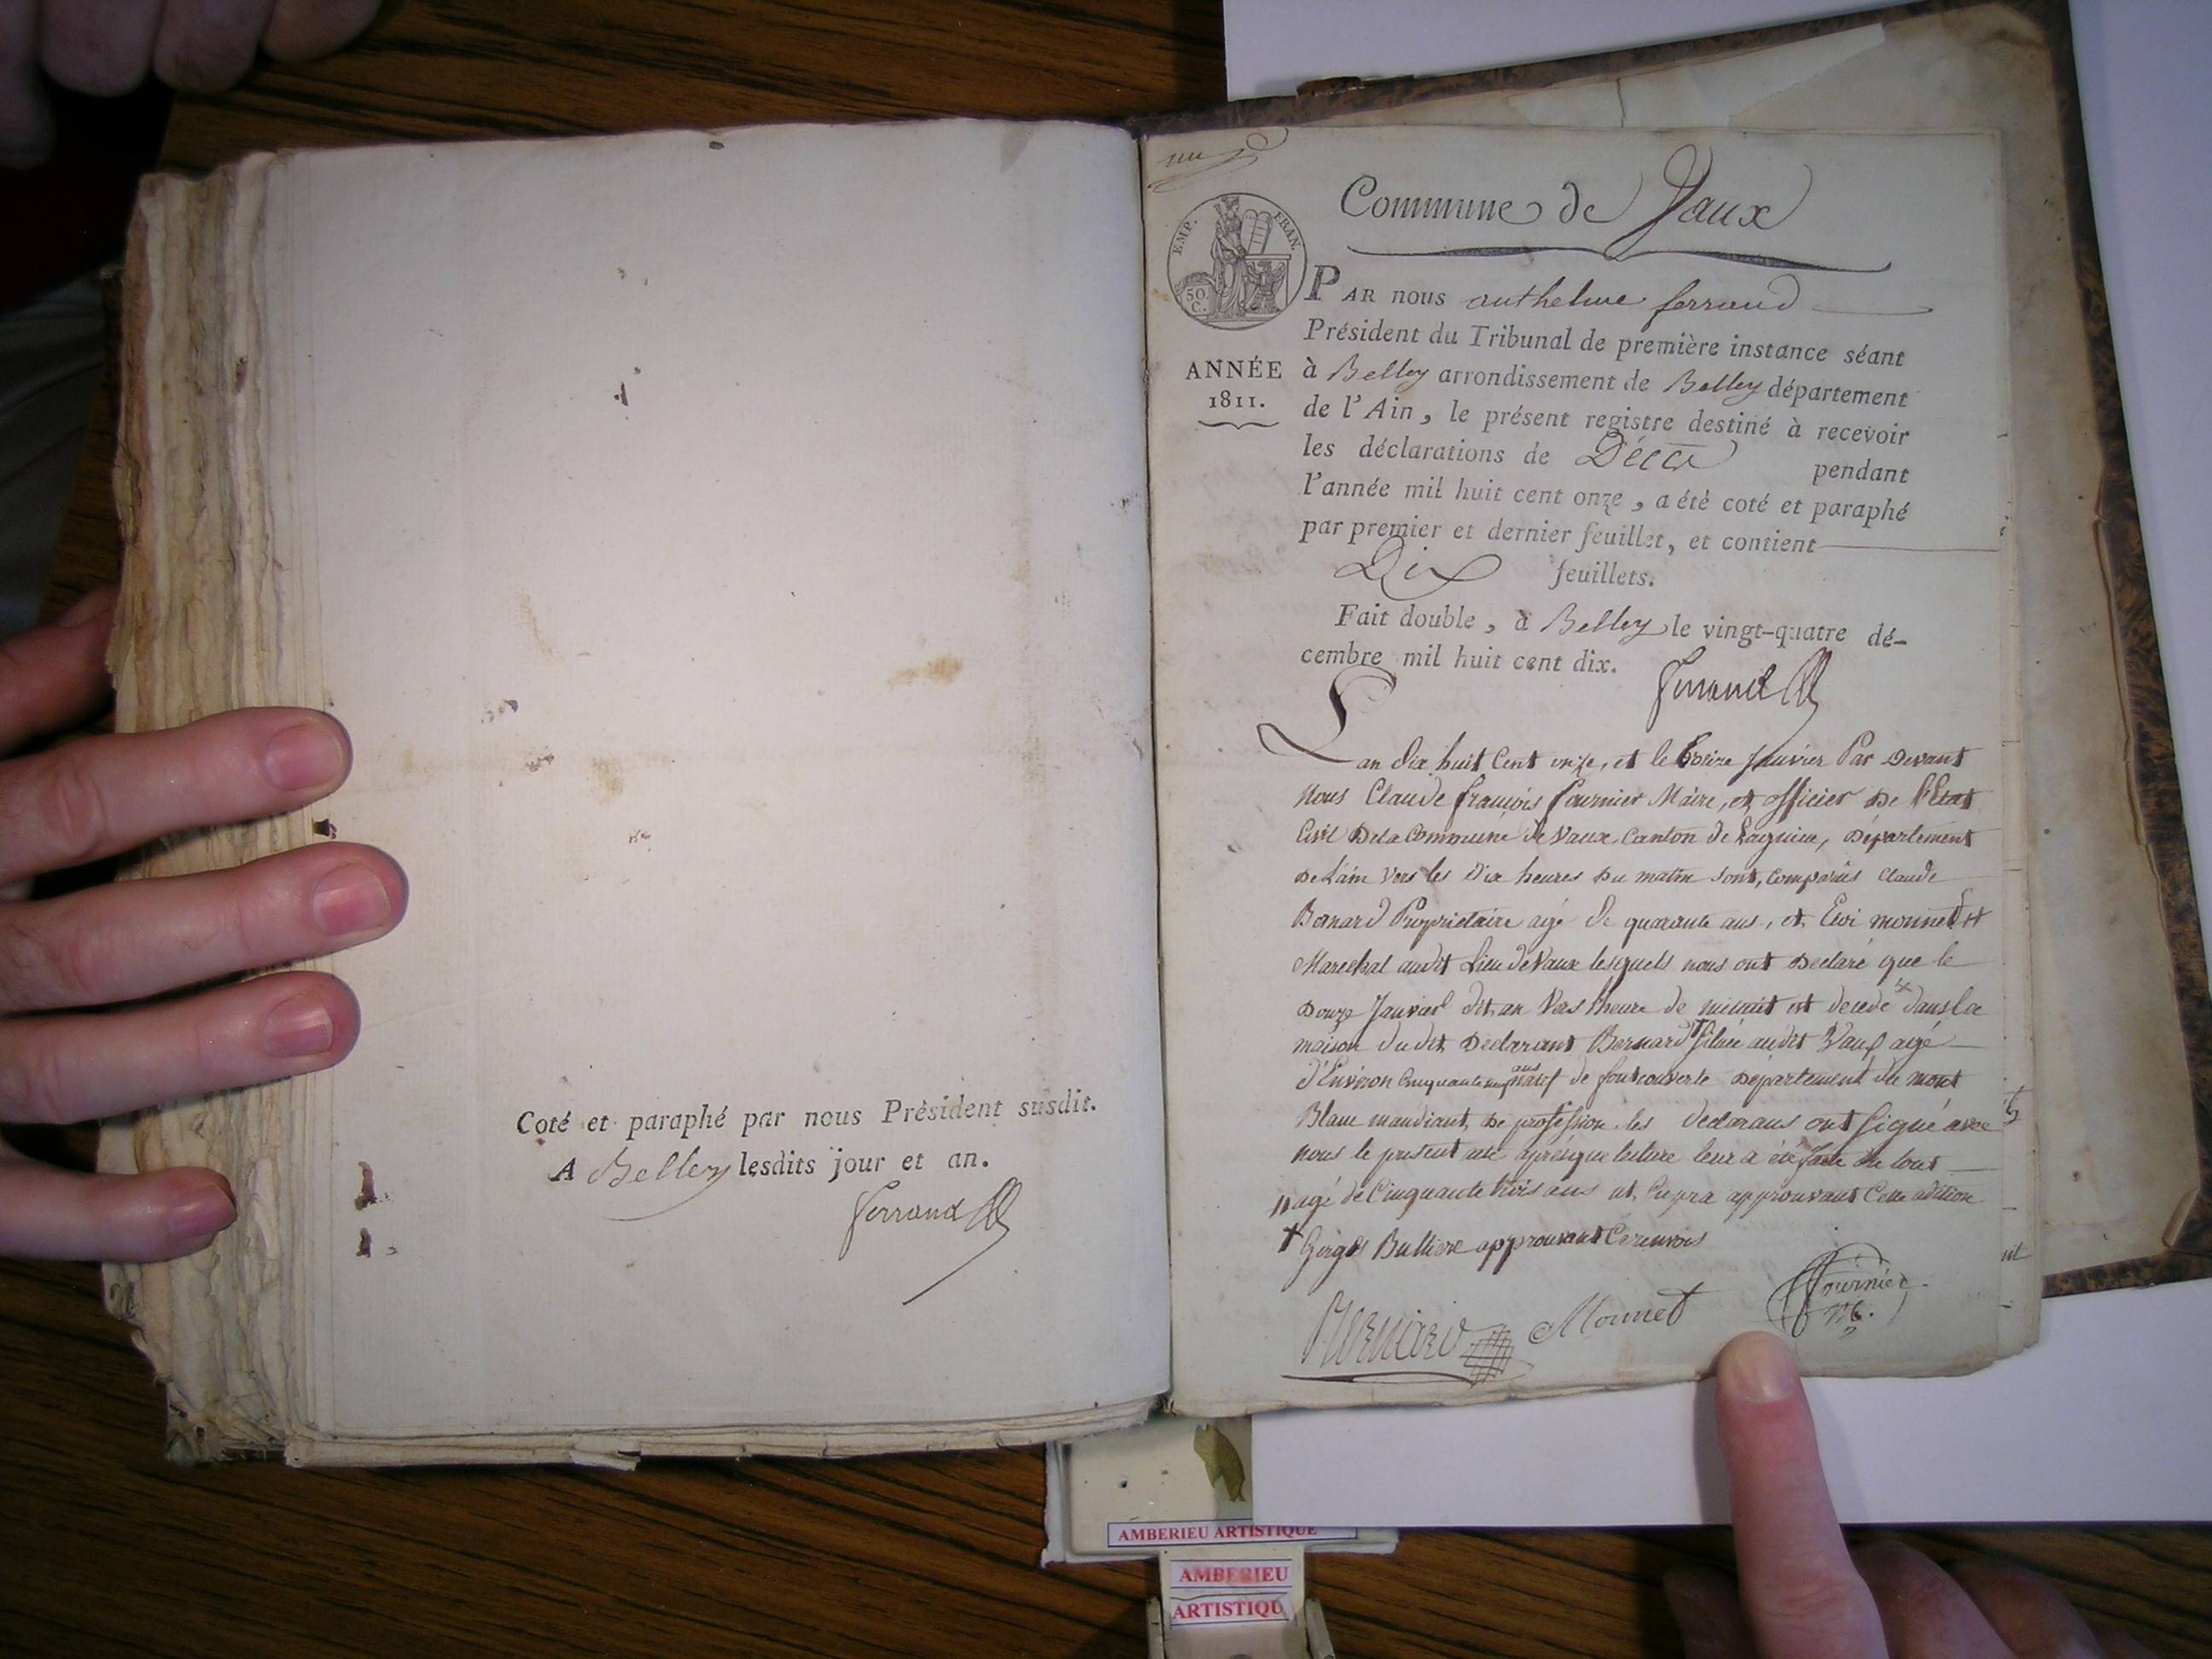 Coté et paraphé par nous Président susdit.
A Belley lesdits jour et an.
Ferrand
Commune de Vaux
EMP. FRAN.
50. C.
ANNÉE
1811.
PAR nous anthelme ferrand
Président du Tribunal de première instance séant
à Belley arrondissement de Belley département
de l'Ain, le présent registre destiné à recevoir
les déclarations de Décès pendant
l'année mil huit cent onze, a été coté et paraphé
par premier et dernier feuillet, et contient
Dix feuillets.
Fait double, à Belley le vingt-quatre dé-
cembre mil huit cent dix.
Ferrand
Lan dix huit Cent onze, et le treize Janvier Par Devant
Nous Claude françois fournier Maire, et officier De l'Etat
Civil Dela Commune de Vaux, Canton de Lagnieu, Département
De Lain vers les Dix heures du matin sont, comparûs Claude
Bernard Proprietaire agé De quarante ans, et Eloi monnet
Marechal audit Lieu de Vaux lesquels nous ont Declaré que le
Douze Janvier dit an vers lheure de minuit est decedé dans la
maison dudit Declarant Bernard † située audit Vaux agé
d'Environ Cinquante ans natif de fontcouverte Departement du mont
Blanc mandiant, de profession. les declarans ont Signé avec
nous le present acte aprésque lecture leur a été faite du tout
" agé de Cinquante trois ans ut, supra approuvant Cette adition
† Bulliere approuvant Ce renvois
BERNARD Monnet fournier
AMBERIEU ARTISTIQUE
AMBERIEU
ARTISTIQU